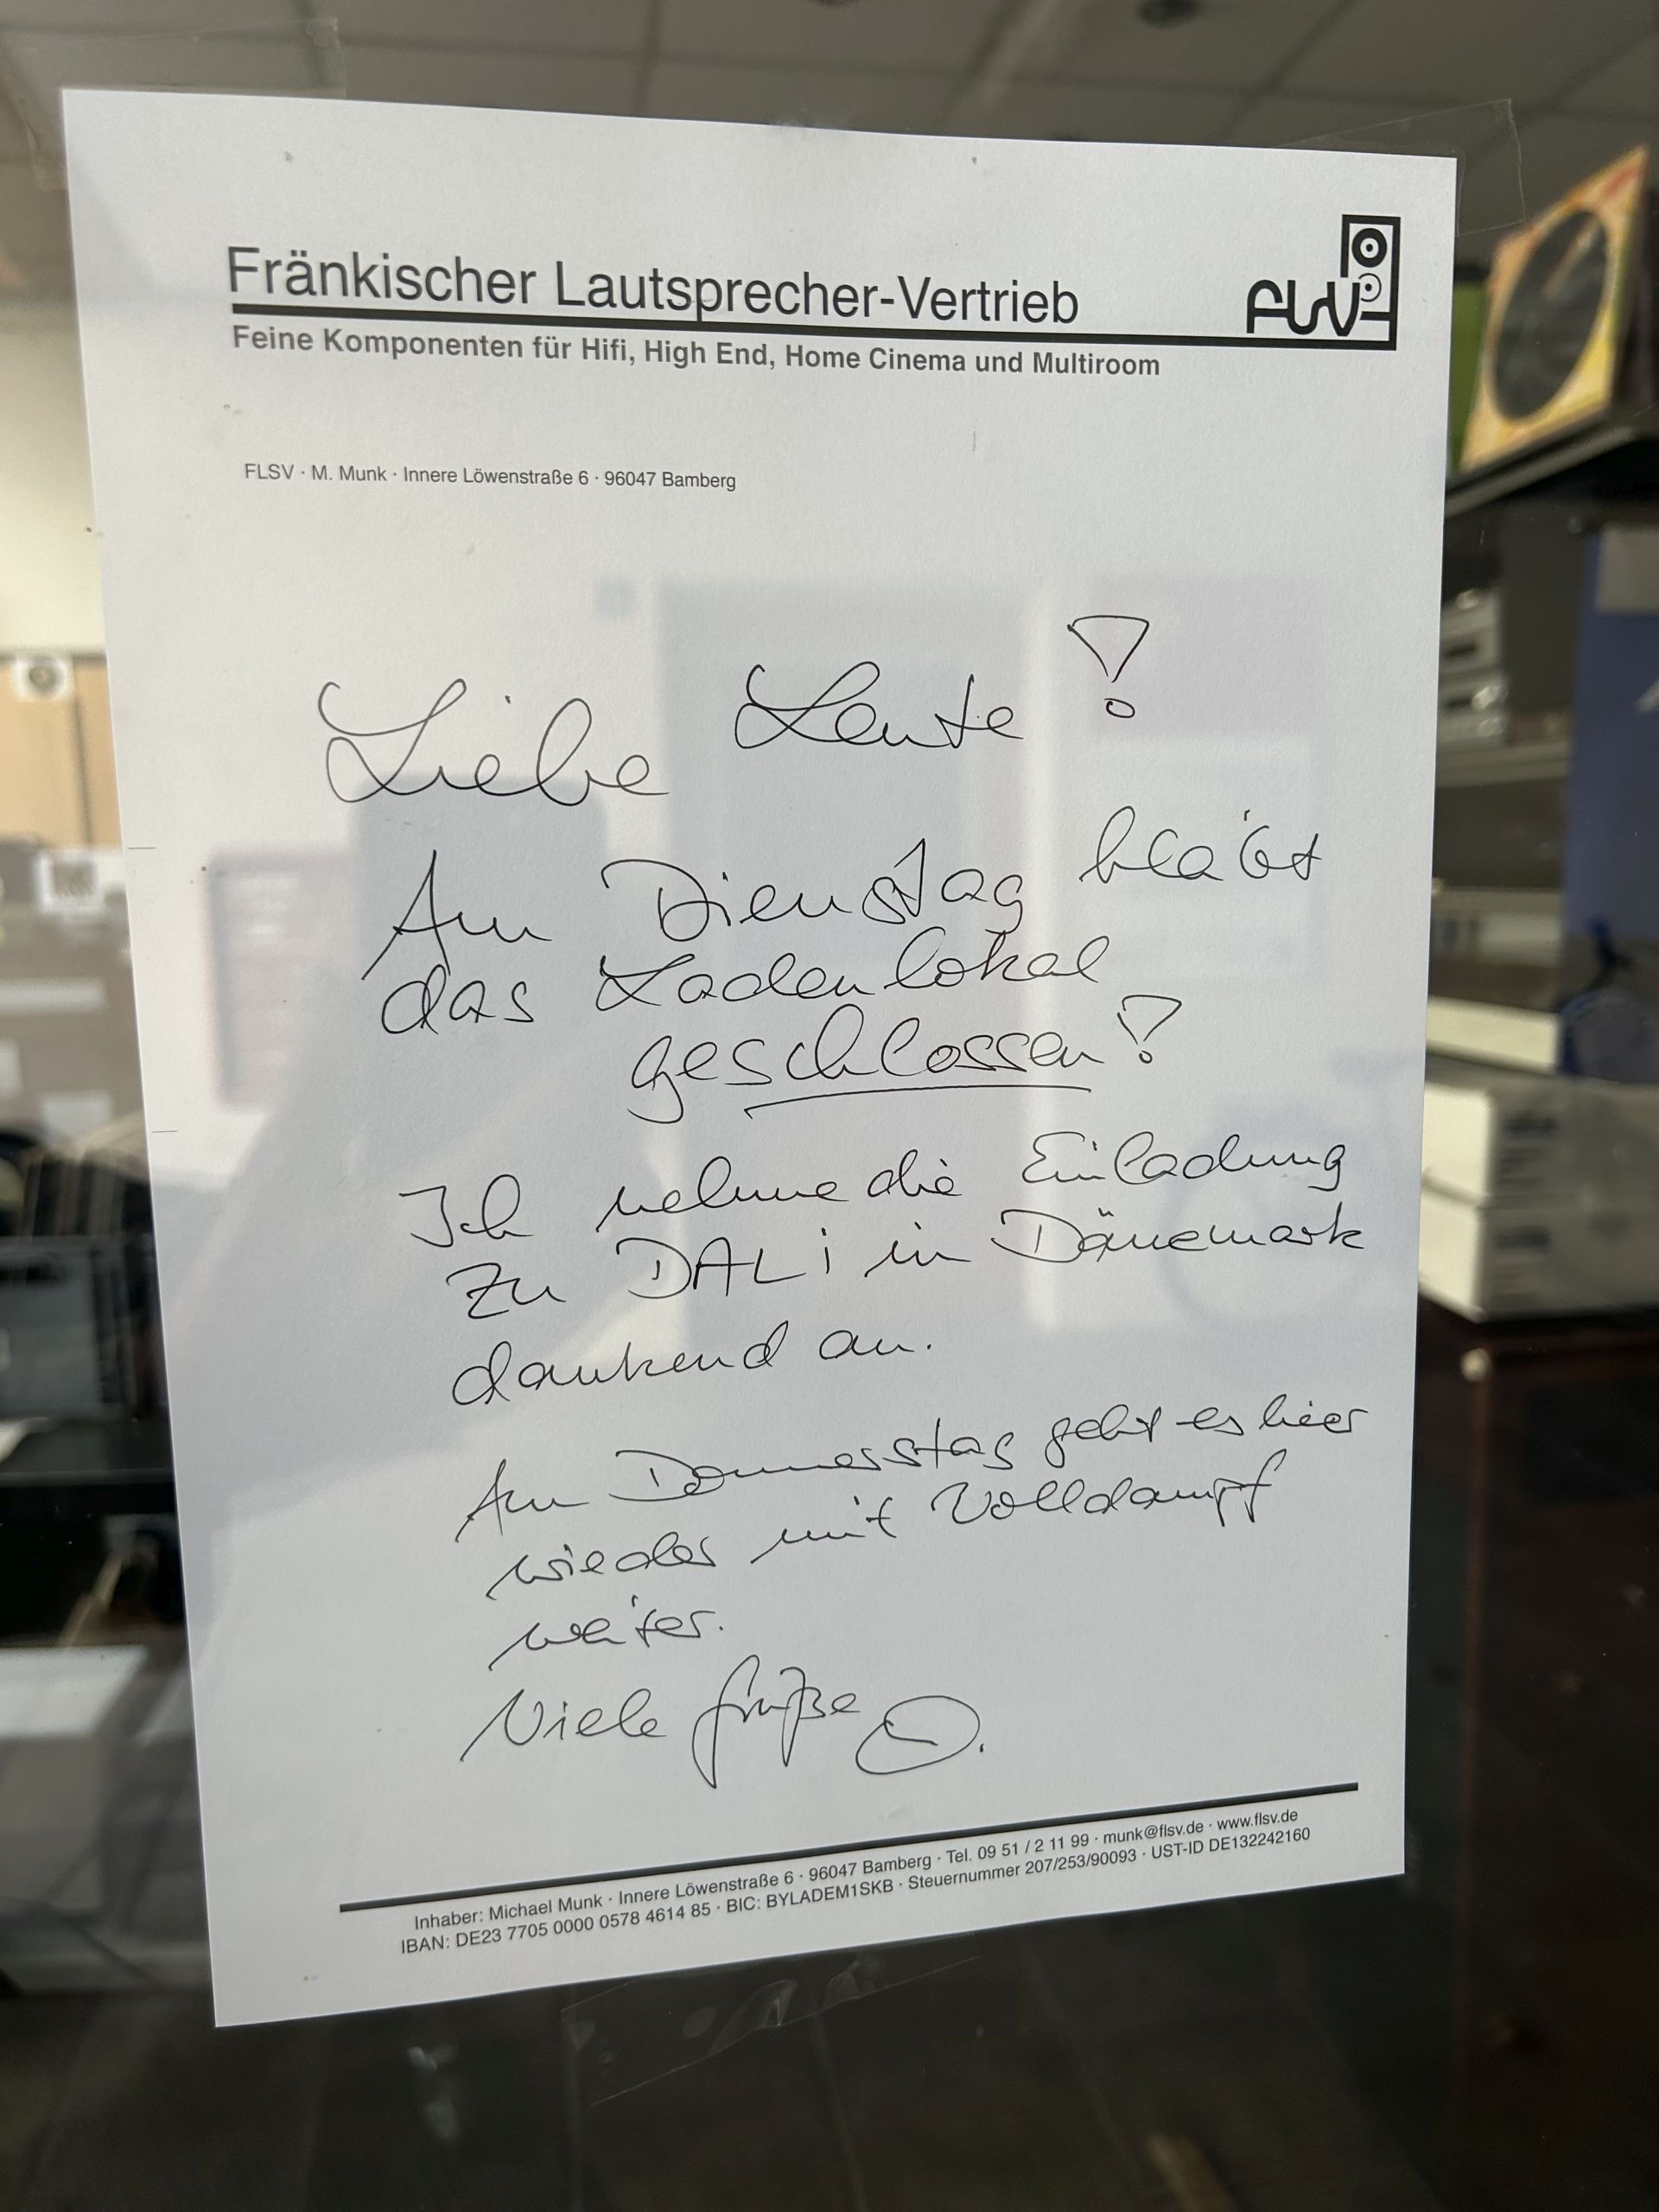 Fränkischer Lautsprecher-Vertrieb
FLSV
Feine Komponenten für Hifi, High End, Home Cinema und Multiroom
FLSV · M. Munk · Innere Löwenstraße 6 · 96047 Bamberg
Liebe Leute!
Am Dienstag bleibt
das Ladenlokal
geschlossen!
Ich nehme die Einladung
zu DALi in Dänemark
dankend an.
Am Donnerstag geht es hier
wieder mit Volldampf
weiter.
Viele Grüße
Inhaber: Michael Munk · Innere Löwenstraße 6 · 96047 Bamberg · Tel. 09 51 / 2 11 99 · munk@flsv.de · www.flsv.de
IBAN: DE23 7705 0000 0578 4614 85 · BIC: BYLADEM1SKB · Steuernummer 207/253/90093 · UST-ID DE132242160